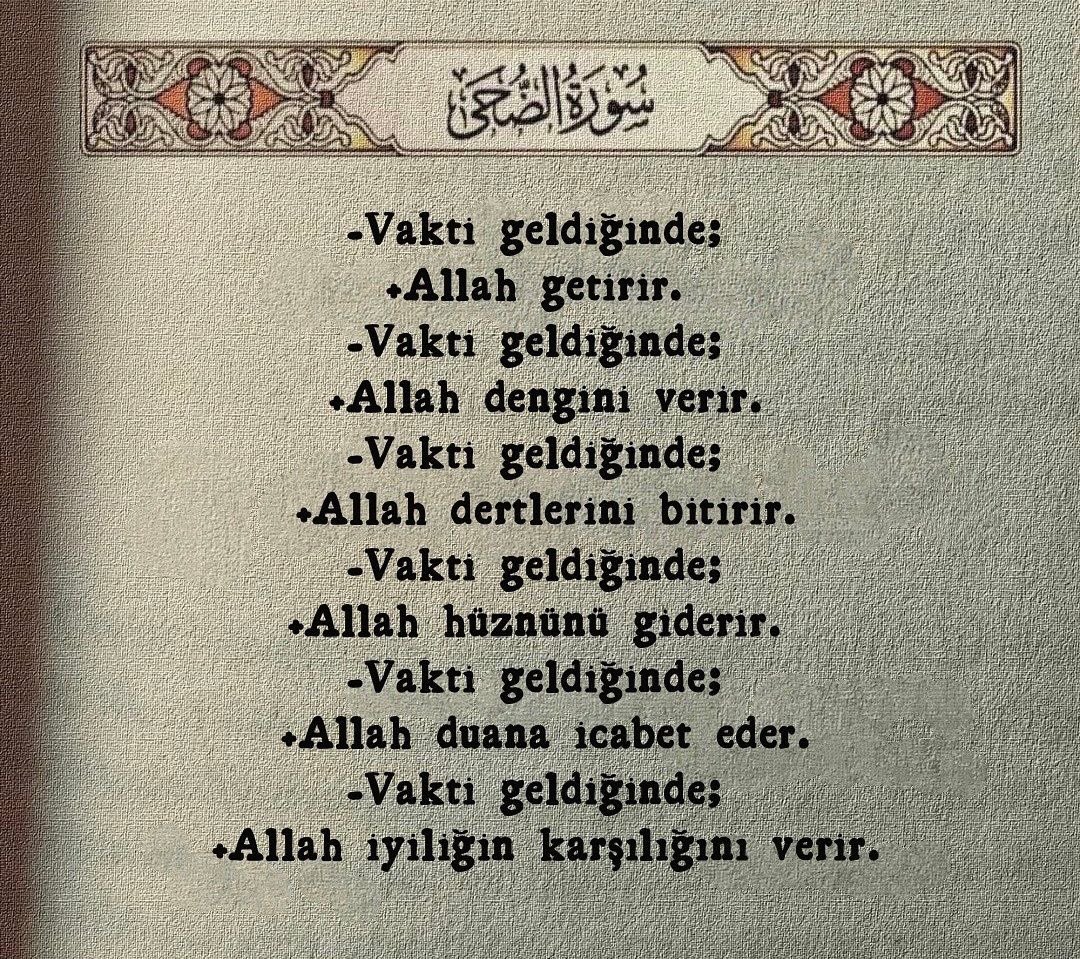 سُورَةُ الضُّحَىٰ
-Vakti geldiğinde;
+Allah getirir.
-Vakti geldiğinde;
+Allah dengini verir.
-Vakti geldiğinde;
+Allah dertlerini bitirir.
-Vakti geldiğinde;
+Allah hüznünü giderir.
-Vakti geldiğinde;
+Allah duana icabet eder.
-Vakti geldiğinde;
+Allah iyiliğin karşılığını verir.